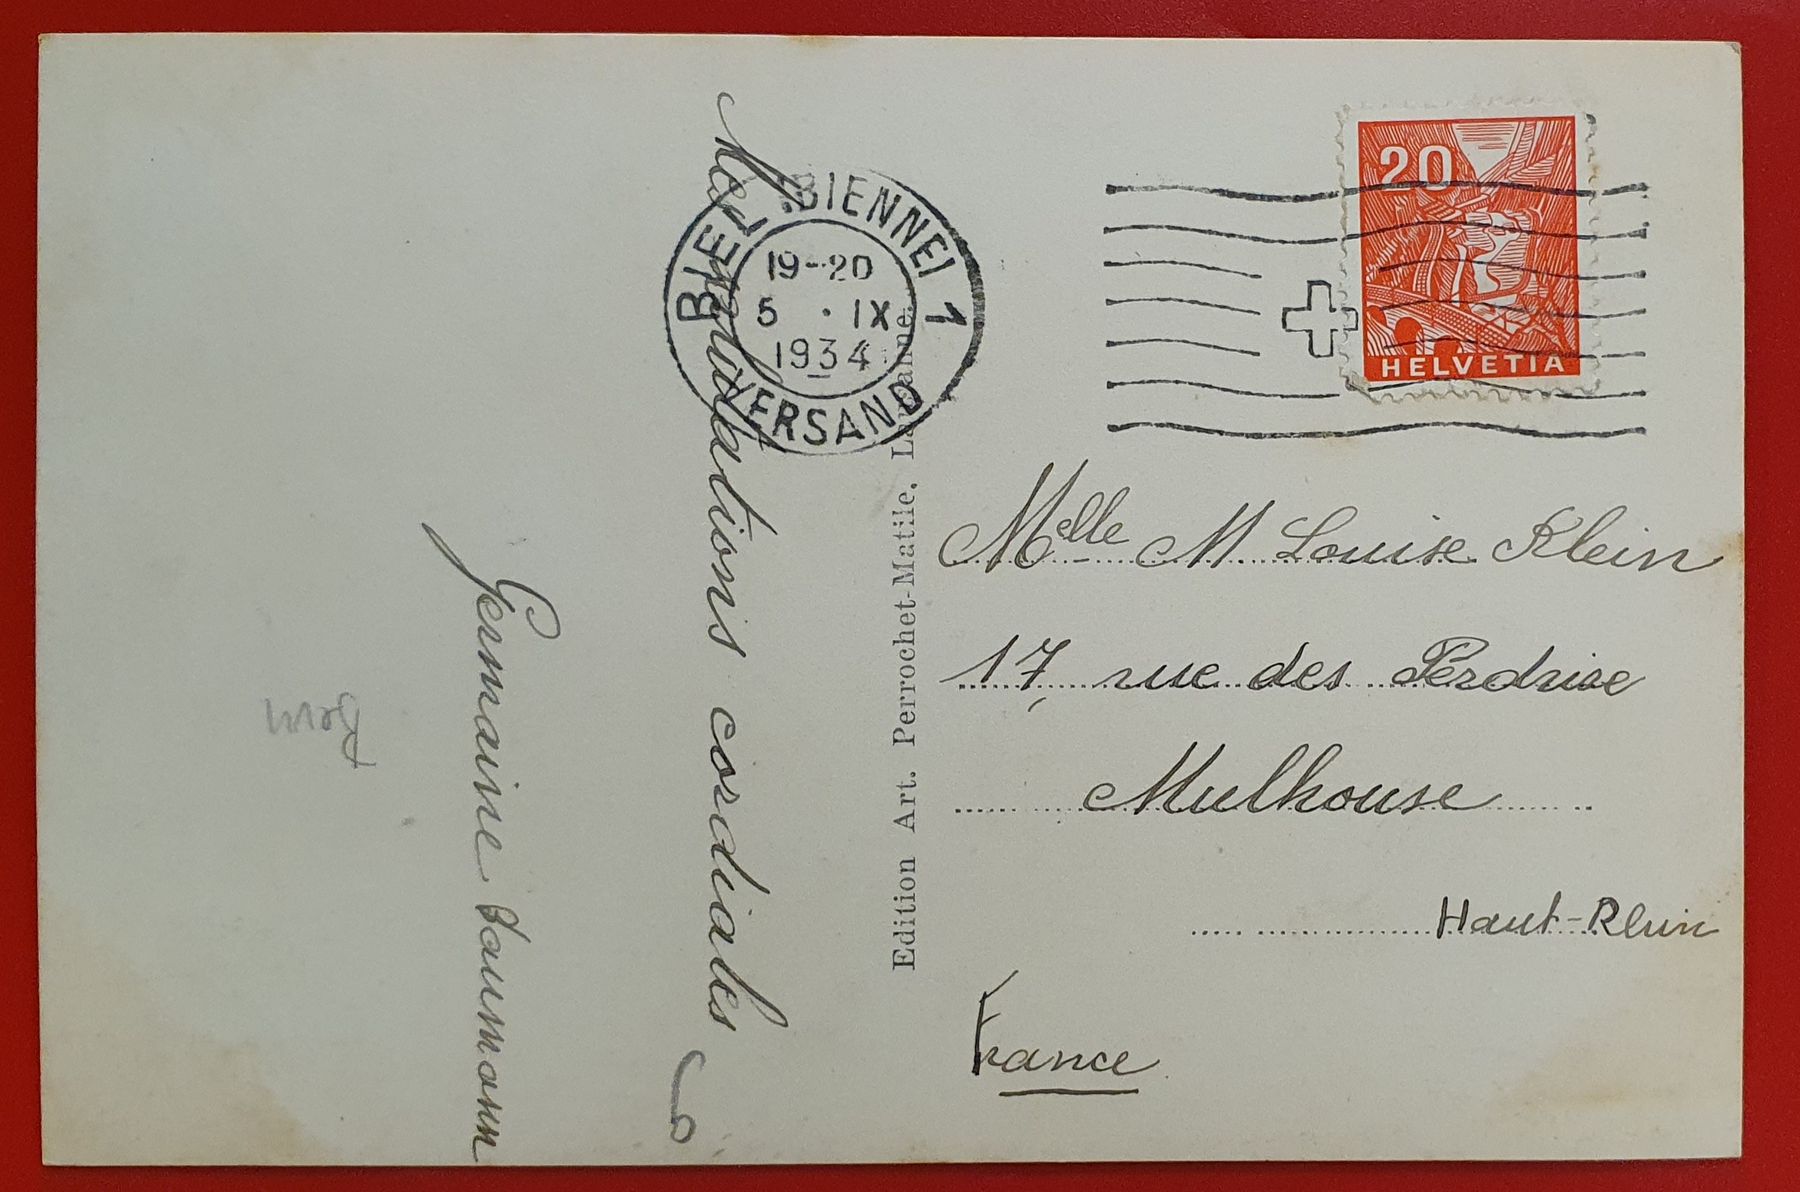 Salutations cordiales
Germaine
Bern
6
Edition Art. Perrochet-Matile, Lausanne.
BIEL·BIENNE 1
19-20
5 · IX
1934
VERSAND
20
HELVETIA
Mlle M. Louise Klein
17, rue des Perdrise
Mulhouse
Haut-Rhin
France